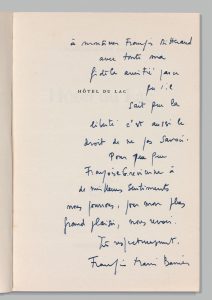 à monsieur François Mitterrand
avec toute ma
fidèle amitié parce
HÔTEL DU LAC
qu'il
sait que la
liberté c'est aussi le
droit de ne pas savoir.
Pour que
Françoise
de meilleurs sentiments
nous pourrons, pour mon plus
grand plaisir, nous revoir.
Très respectueusement.
François Marie Banier